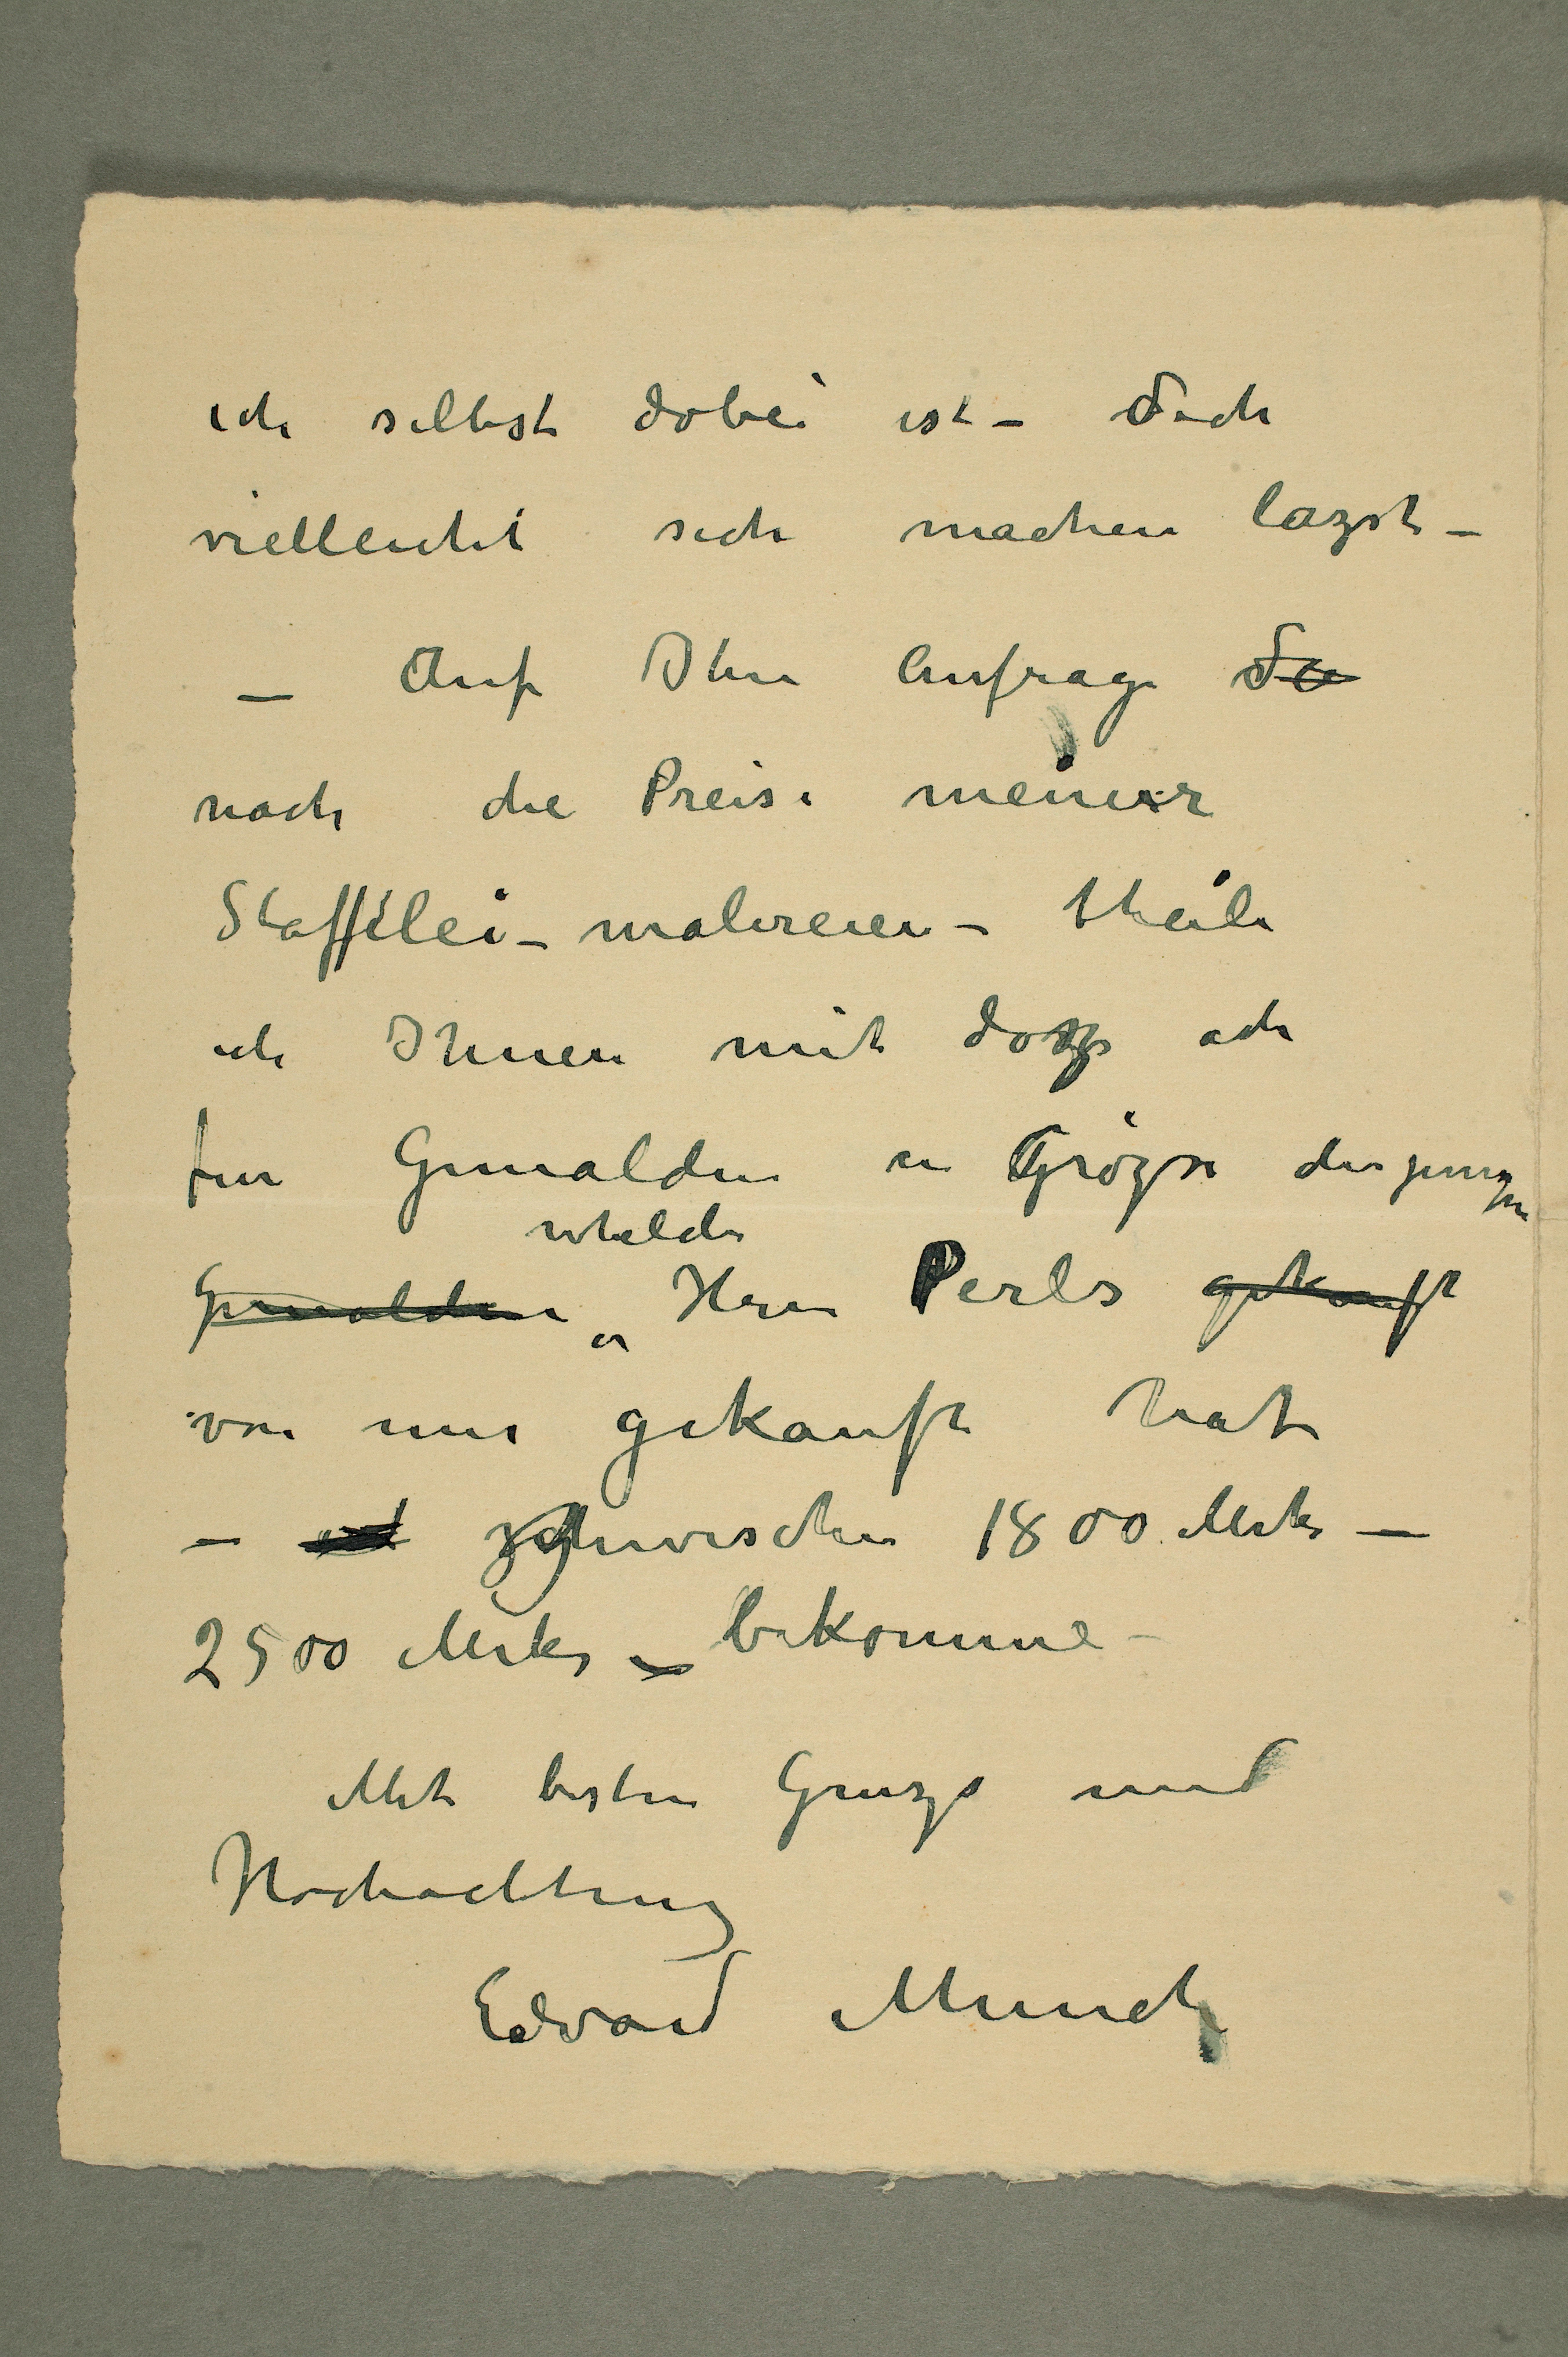 ich selbst dabei ist – doch
vielleicht sich machen lazst –
– Auf Ihre Anfrage
nach die Preise meiner
Staffelei-malereien – theile
ich Ihnen mit dazs ich
fur Gemälden in Grözse derjenigen
welche
Gemälden Herr Perls gekauft
von mir gekauft hat
– zwischen 1800 Mrk –
2500 Mrk bekomme –
Mit besten Gruzs und
Hochachtung
Edvard Munch